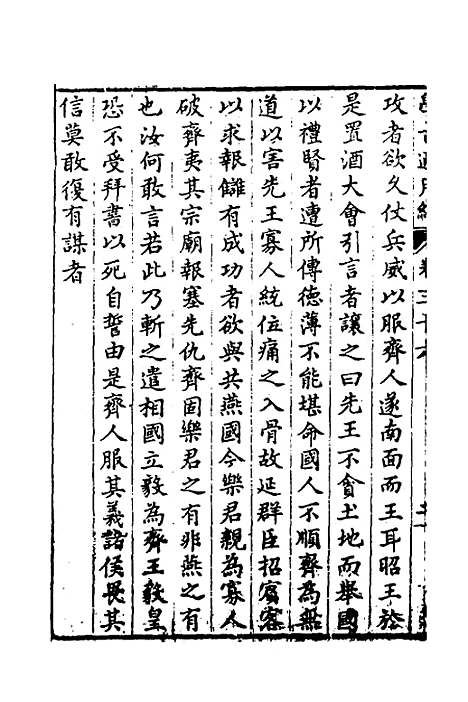 攻者欲久仗兵威以服齊人遂南面而王耳昭王於
是置酒大會引言者讓之曰先王不貪土地而舉國
以禮賢者遭所傳德薄不能堪命國人不順齊為無
道以害先王寡人統位痛之入骨故延群臣招賓客
以求報讎有成功者欲與共燕國今樂君親為寡人
破齊夷其宗廟報塞先仇齊固樂君之有非燕之有
也汝何敢言若此乃斬之遣相國立毅為齊王毅皇
恐不受拜書以死自誓由是齊人服其義諸侯畏其
信莫敢復有謀者